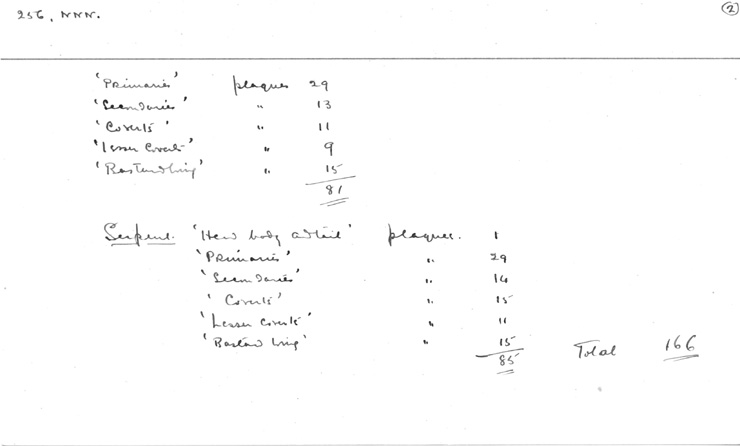 256, NNN. 2
'Primaries' plaques 29
'Secondaries' " 13
'Coverts' " 11
'Lesser Coverts' " 9
'Bastard wing' " 15
81
Serpent. 'Head body and tail' plaques. 1
'Primaries' " 29
'Secondaries' " 14
'Coverts' " 15
'Lesser Coverts' " 11
'Bastard wing' " 15
85 Total 166